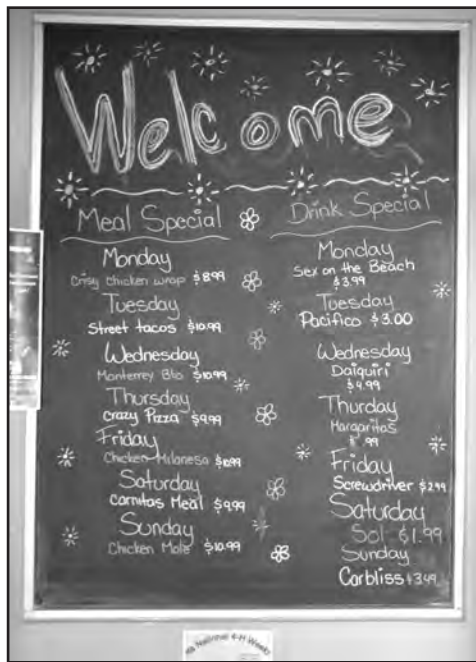 Welcome
Meal Special
Monday
Crisy Chicken wrap $8.99
Tuesday
Street tacos $10.99
Wednesday
Monterrey Bto $10.99
Thursday
crazy Pizza $9.99
Friday
Chicken Milanesa $10.99
Saturday
Carnitas Meal $9.99
Sunday
Chicken Mole $10.99
Drink Special
Monday
Sex on the Beach
$3.99
Tuesday
Pacifico $3.00
Wednesday
Daiquiri
$4.99
Thurday
Margaritas
Friday
Screwdriver $2.99
Saturday
Sol $1.99
Sunday
Carbliss $3.49
National 4-H Week